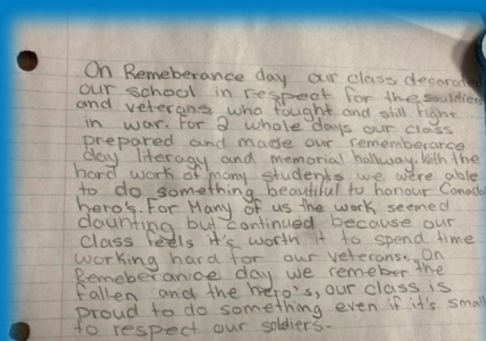 On Remeberance day our class decorated
our school in respect for the souldiers
and veterans who fought and still fight
in war. For 2 whole days our class
prepared and made our rememberance
day literacy and memorial hallway. With the
hard work of many students we were able
to do something beautiful to honour Canada
hero's. For Many of us the work seemed
daunting but continued because our
class feels it's worth it to spend time
working hard for our veterans. On
Remeberance day we remeber the
fallen and the hero's, our class is
proud to do something even if it's small
to respect our soldiers.